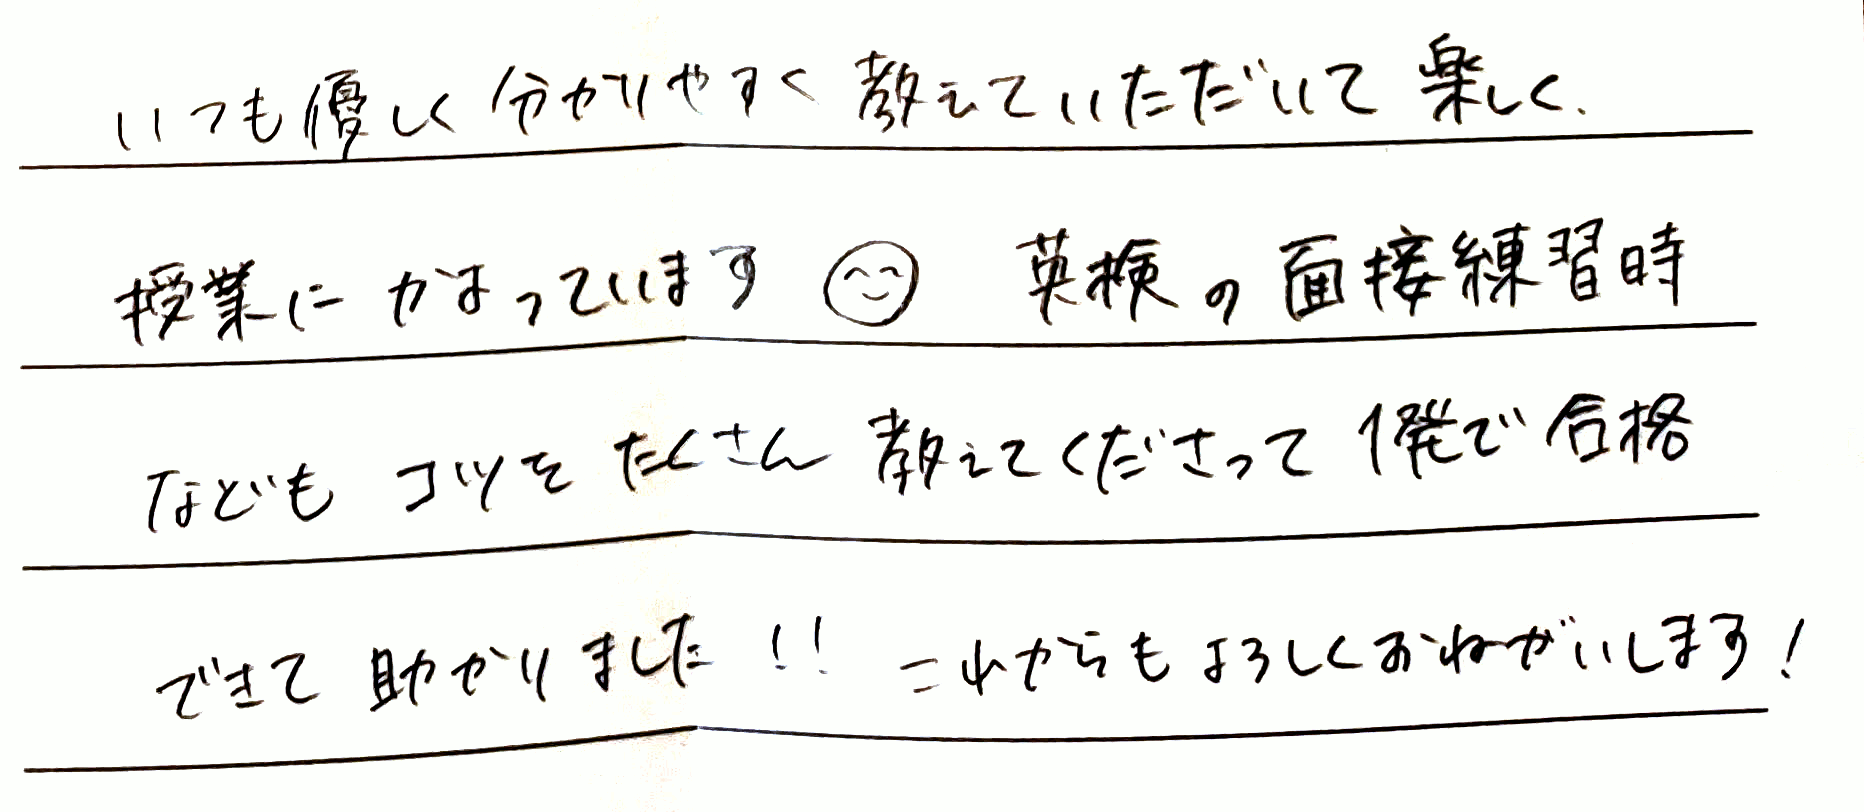 いつも優しく分かりやすく教えていただいて楽しく、
授業にかよっています 英検の面接練習時
などもコツをたくさん教えてくださって1発で合格
できて助かりました!! これからもよろしくおねがいします!